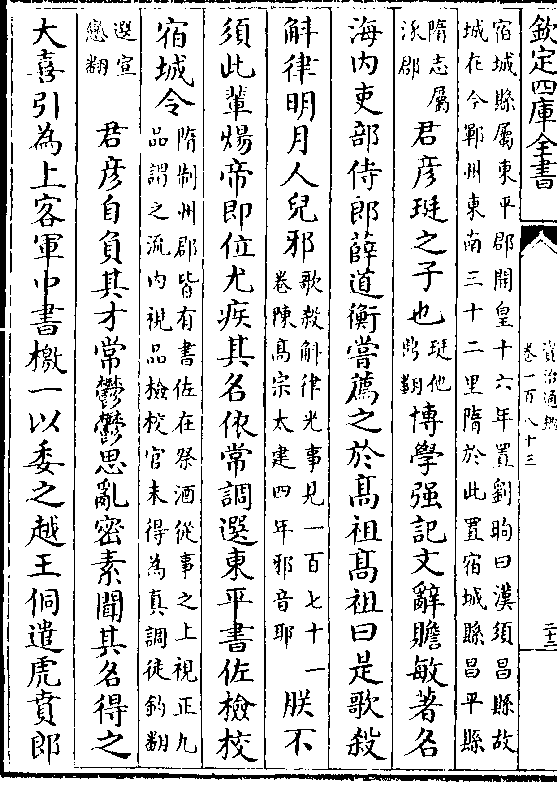 欽定四庫全書
資治通鑑
卷一百八十三
二十三
宿城縣屬東平郡開皇十六年置劉昫曰漢須昌縣故
城在今鄆州東南三十二里隋於此置宿城縣昌平縣
隋志屬
涿郡
君彦珽之子也
珽他
鼎翻
博學强記文辭贍敏著名
海内吏部侍郎薛道衡嘗薦之於髙祖髙祖曰是歌殺
斛律明月人兒邪
歌殺斛律光事見一百七十一
卷陳髙宗太建四年邪音耶
朕不
須此輩煬帝即位尤疾其名依常調選東平書佐檢校
宿城令
隋制州郡皆有書佐在祭酒從事之上視正九
品謂之流内視品檢校官未得為真調徒釣翻
選宣
戀翻
君彦自負其才常鬱鬱思亂密素聞其名得之
大喜引為上客軍中書檄一以委之越王侗遣虎賁郎